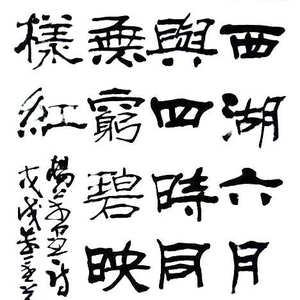 西湖六月
與四時同
無窮碧映
樣紅
楊万里诗
戊戌年